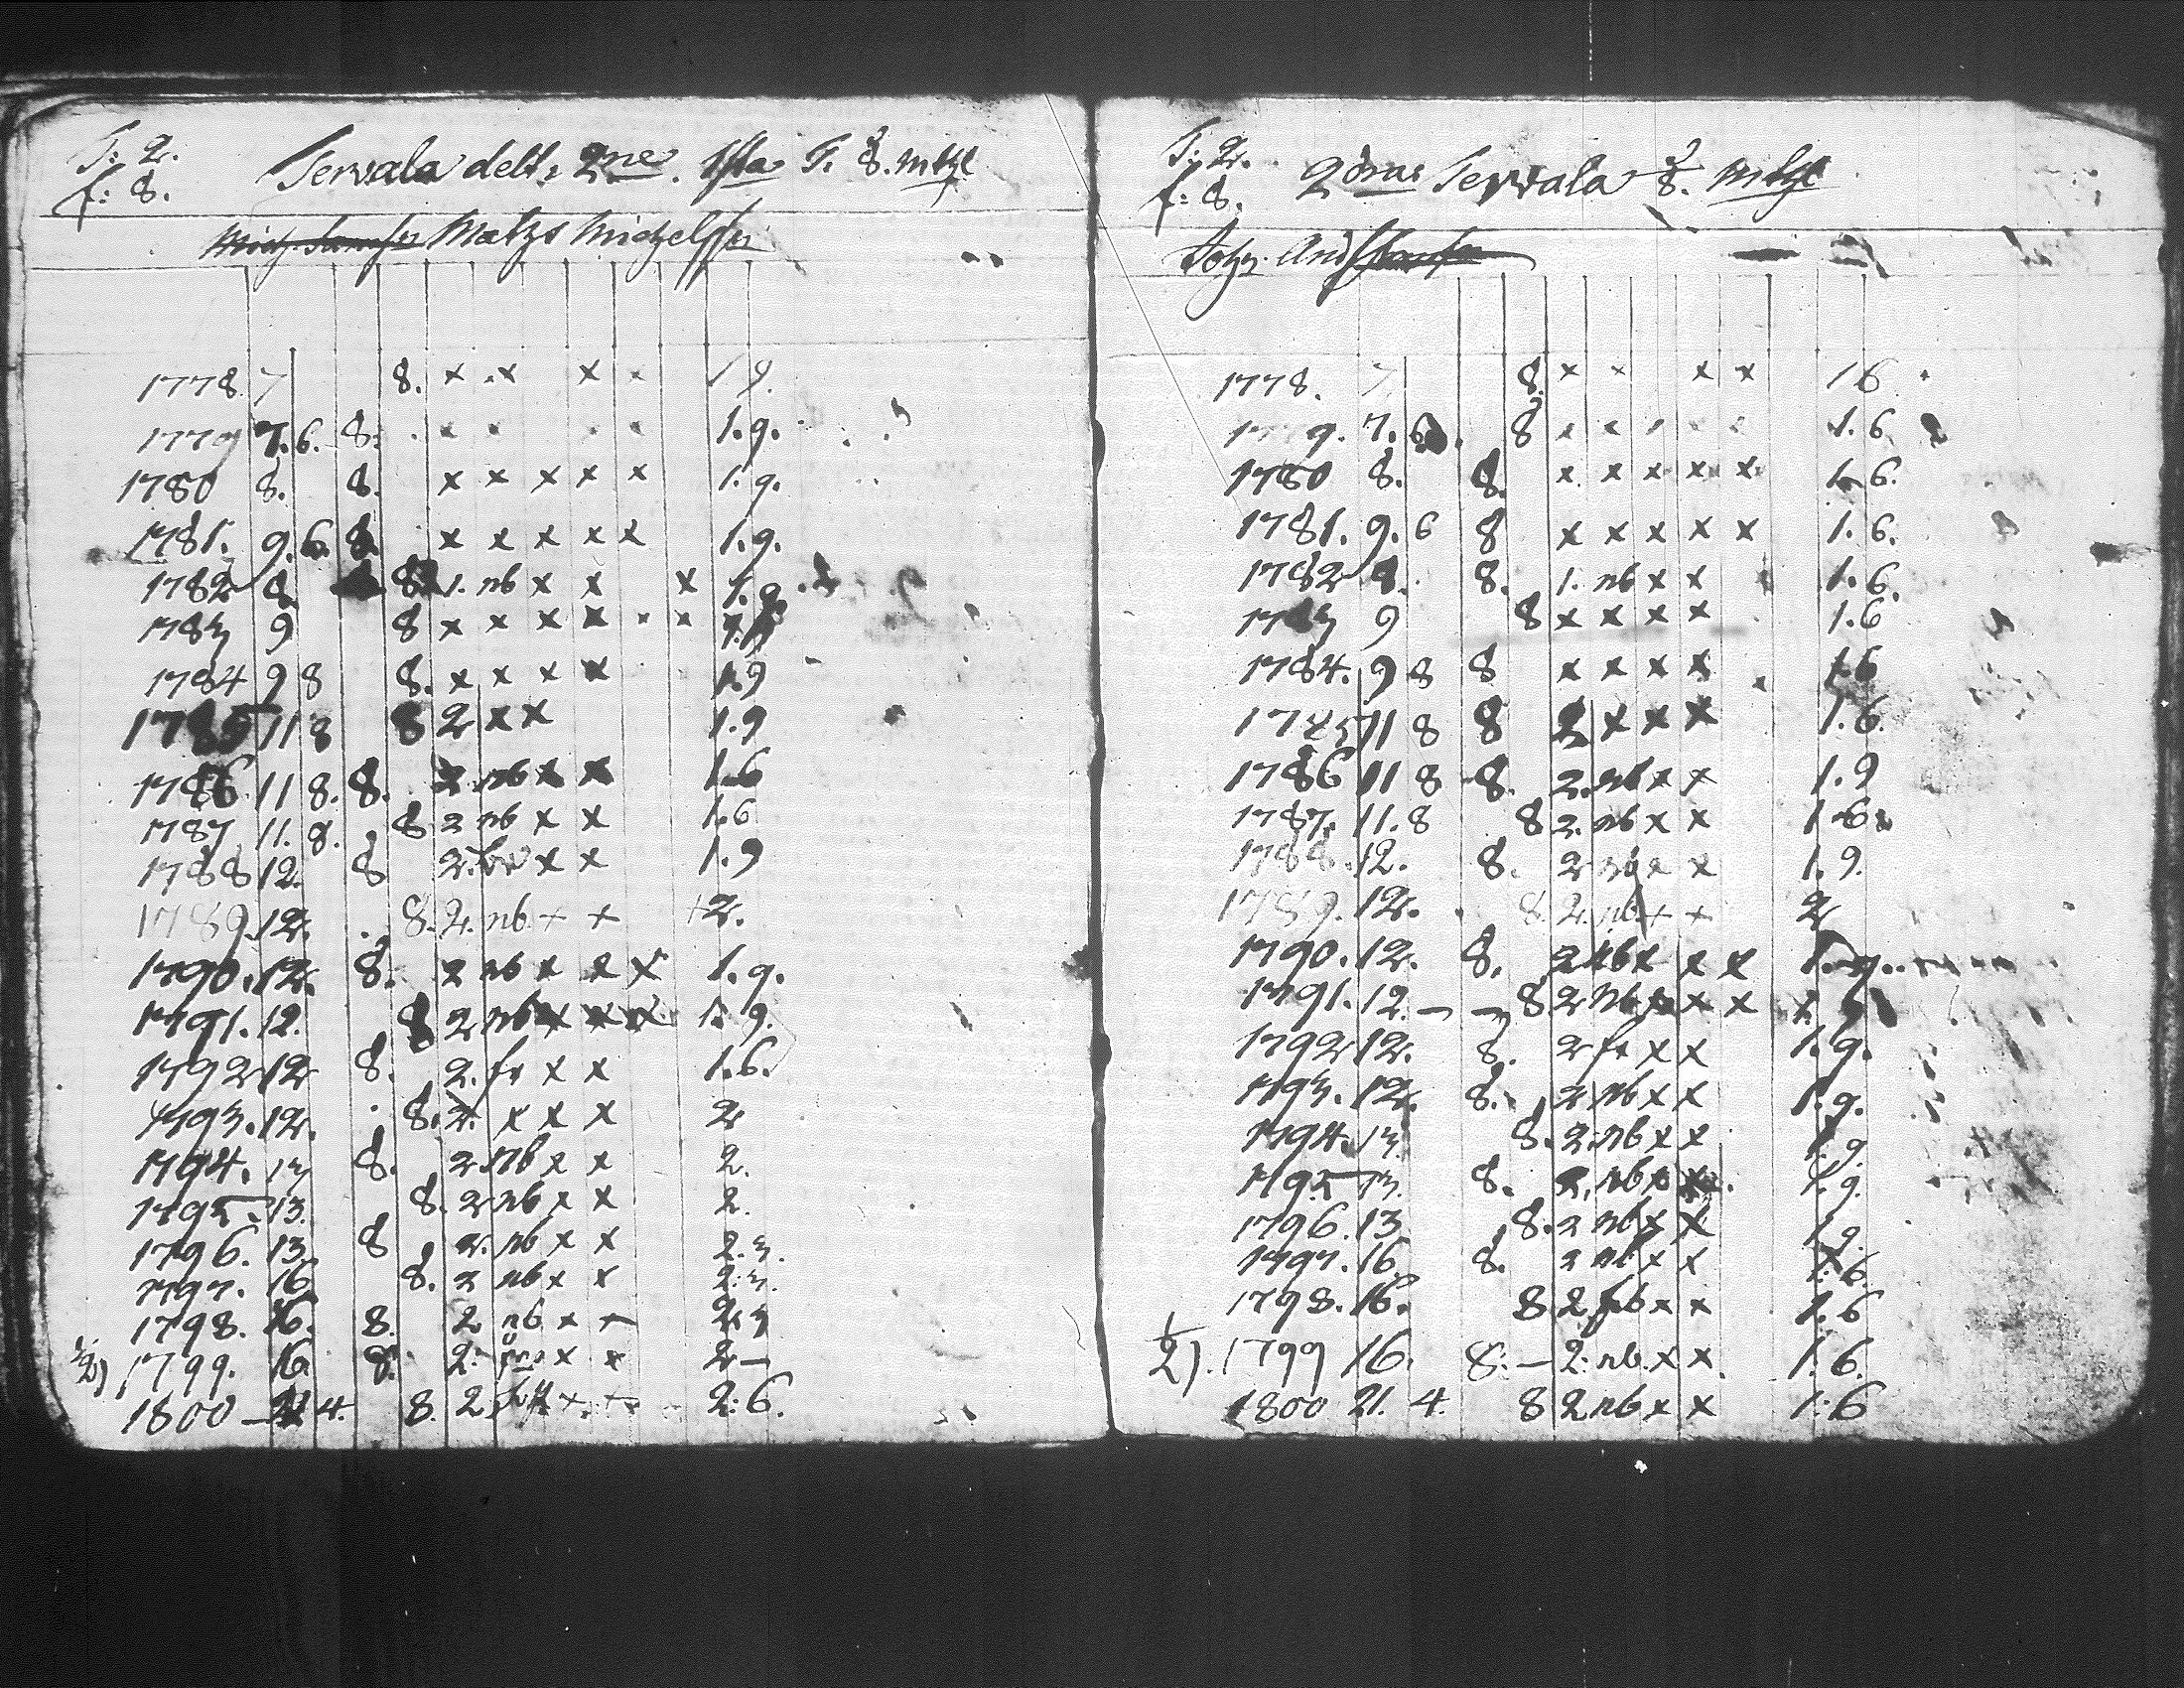 T: 2.
f: 8.
Tervala delt: 2ne. 1sta T. 3/8. mtl
Mich. Matzs Michelss:
1778. 7 8. x x x x 1 9.
1779 7. 6. 8. x x x x 1. 9.
1780 8. 8. x x x x x 1. 9.
1781. 9. 6. 8. x x x x x 1. 9.
1782 8. 8 1. nb x x x 1. 9
1783 9 8 x x x x x x
1784 9 8 8. x x x x 1.9
1785 11 8 8 2 x x 1.9
1786 11 8. 8. 2. nb x x 1.6
1787 11. 8. 8 2 nb x x 1.6
1788 12. 8 2. x x 1.9
1789. 12. 8. 2. nb + + 2.
1790. 12. 8. 2 nb x x x 1. 9.
1791. 12. 8 2 nb x x x 1. 9.
1792 12 8. 2. fr x x 1.6.
1793. 12. 8. 2. x x x 2
1794. 13 8. 2 nb x x 2.
1795. 13. 8. 2 nb x x 2.
1796. 13. 8 2. nb x x 2. 3.
1797. 16 8. 2 nb x x 2: 3.
1798. 16. 8. 2 nb x x 2. 3
1/2) 1799. 16 8. 2. x x 2 —
1800 — 21 4. 8. 2 x x 2: 6.
T: 2.
f: 8.
2dra Tervala 3/8. mtl
Joh: And
1778. 7 8. x x x x 1 6
1779. 7. 6. 8 x x x x x 1. 6
1780 8. 8. x x x x x 1. 6.
1781. 9. 6 8 x x x x x 1. 6.
1782 8. 8. 1. nb x x 1. 6.
1783 9 8 x x x x 1.6
1784. 9 8 8 x x x x 1.6
1785 11 8 8 2 x x x 1.6.
1786 11 8 8. 2. nb x x 1. 9
1787. 11. 8 8 2. nb x x 1 6.
1788. 12. 8. 2 nb x x 1. 9.
1789. 12. 8. 2. nb + + 2
1790. 12. 8. 2 nb x x x 1. 9.
1791. 12. — — 8 2 nb x x x
1792 12. 8. 2 fr x x 1. 9.
1793. 12. 8. 2 nb x x 1. 9.
1794. 13 8. 2. nb x x 1. 9.
1795 13. 8. 2. nb x 1. 9.
1796. 13 8. 2 nb x x 1 9.
1797. 16. 8. 2 nb x x 1: 6.
1798. 16. 8 2 x x 1. 6
1/2). 1799 16. 8. — 2. nb. x x. 1. 6.
1800 21. 4. 8 2 nb x x 1: 6